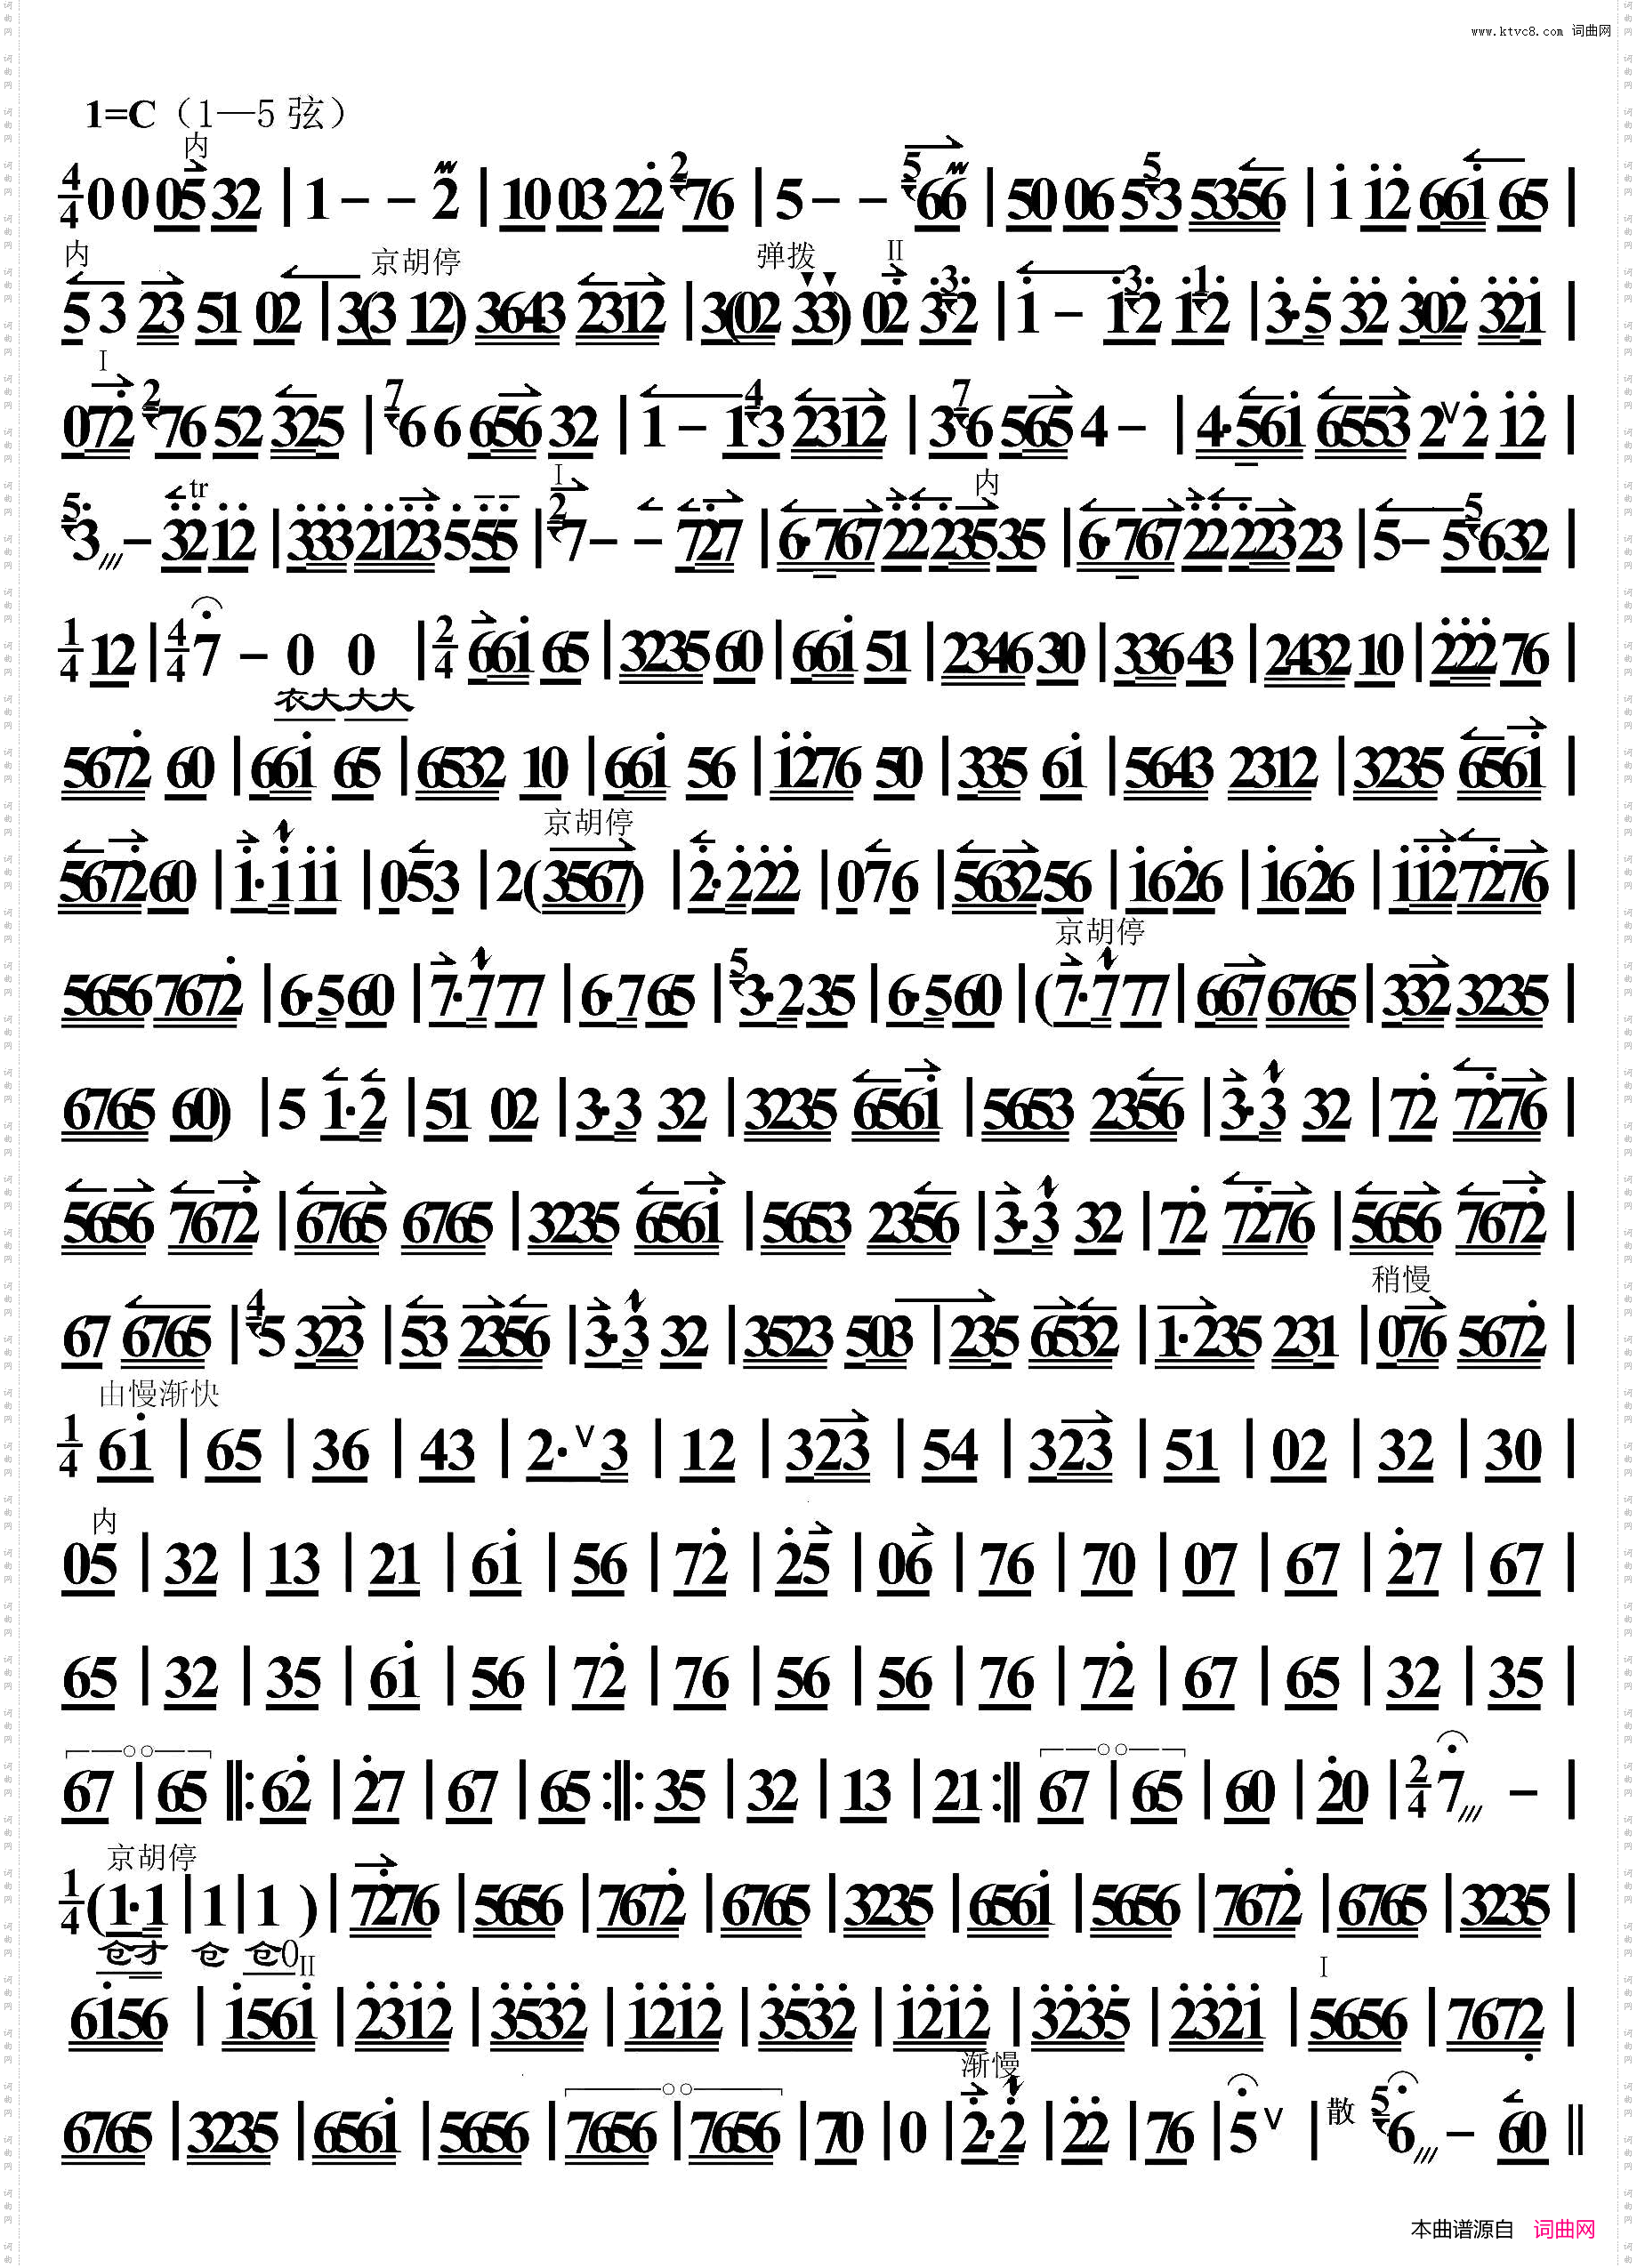 www.ktvc8.com 词曲网
1=C（1—5 弦）
内
4/4 0 0 05 32 | 1 - - 2 | 10 03 22 76 | 5 - - 66 | 50 06 53 5356 | 1 12 661 65 |
内 京胡停 弹拨 II
5 3 23 51 02 | 3(3 12) 3643 2312 | 3(02 33) 02 32 | 1 - 12 12 | 3·5 32 302 321 |
I
072 76 52 325 | 6 6 656 32 | 1 - 13 2312 | 36 565 4 - | 4·561 6553 2 V 2 12 |
tr I 内
3 - 32 12 | 333 2123 555 | 7 - - 727 | 6·767 22 235 35 | 6·767 22 223 23 | 5 - 5 632 |
1/4 12 | 4/4 7 - 0 0 | 2/4 661 65 | 3235 60 | 661 51 | 2346 30 | 336 43 | 2432 10 | 222 76 |
衣大 大大
5672 60 | 661 65 | 6532 10 | 661 56 | 1276 50 | 335 61 | 5643 2312 | 3235 6561 |
京胡停
5672 60 | 1·1 11 | 053 | 2(3567) | 2·2 22 | 076 | 5632 56 | 1626 | 1626 | 112 7276 |
京胡停
5656 7672 | 6·5 60 | 7·7 77 | 6·7 65 | 3·2 35 | 6·5 60 | (7·7 77 | 667 6765 | 332 3235 |
6765 60) | 5 1·2 | 51 02 | 3·3 32 | 3235 6561 | 5653 2356 | 3·3 32 | 72 7276 |
5656 7672 | 6765 6765 | 3235 6561 | 5653 2356 | 3·3 32 | 72 7276 | 5656 7672 |
稍慢
67 6765 | 5 323 | 53 2356 | 3·3 32 | 3523 503 | 235 6532 | 1·235 231 | 076 5672 |
由慢渐快
1/4 61 | 65 | 36 | 43 | 2· V 3 | 12 | 323 | 54 | 323 | 51 | 02 | 32 | 30 |
内
05 | 32 | 13 | 21 | 61 | 56 | 72 | 25 | 06 | 76 | 70 | 07 | 67 | 27 | 67 |
65 | 32 | 35 | 61 | 56 | 72 | 76 | 56 | 56 | 76 | 72 | 67 | 65 | 32 | 35 |
67 | 65 ‖: 62 | 27 | 67 | 65 :‖: 35 | 32 | 13 | 21 :‖ 67 | 65 | 60 | 20 | 2/4 7 - |
京胡停
1/4 (1·1 | 1 | 1 ) | 7276 | 5656 | 7672 | 6765 | 3235 | 6561 | 5656 | 7672 | 6765 | 3235 |
仓才 仓 仓0 II I
6156 | 1561 | 2312 | 3532 | 1212 | 3532 | 1212 | 3235 | 2321 | 5656 | 7672 |
渐慢
6765 | 3235 | 6561 | 5656 | 7656 | 7656 | 70 | 0 | 2·2 | 22 | 76 | 5 V | 散 6 - 60 ‖
本曲谱源自 词曲网